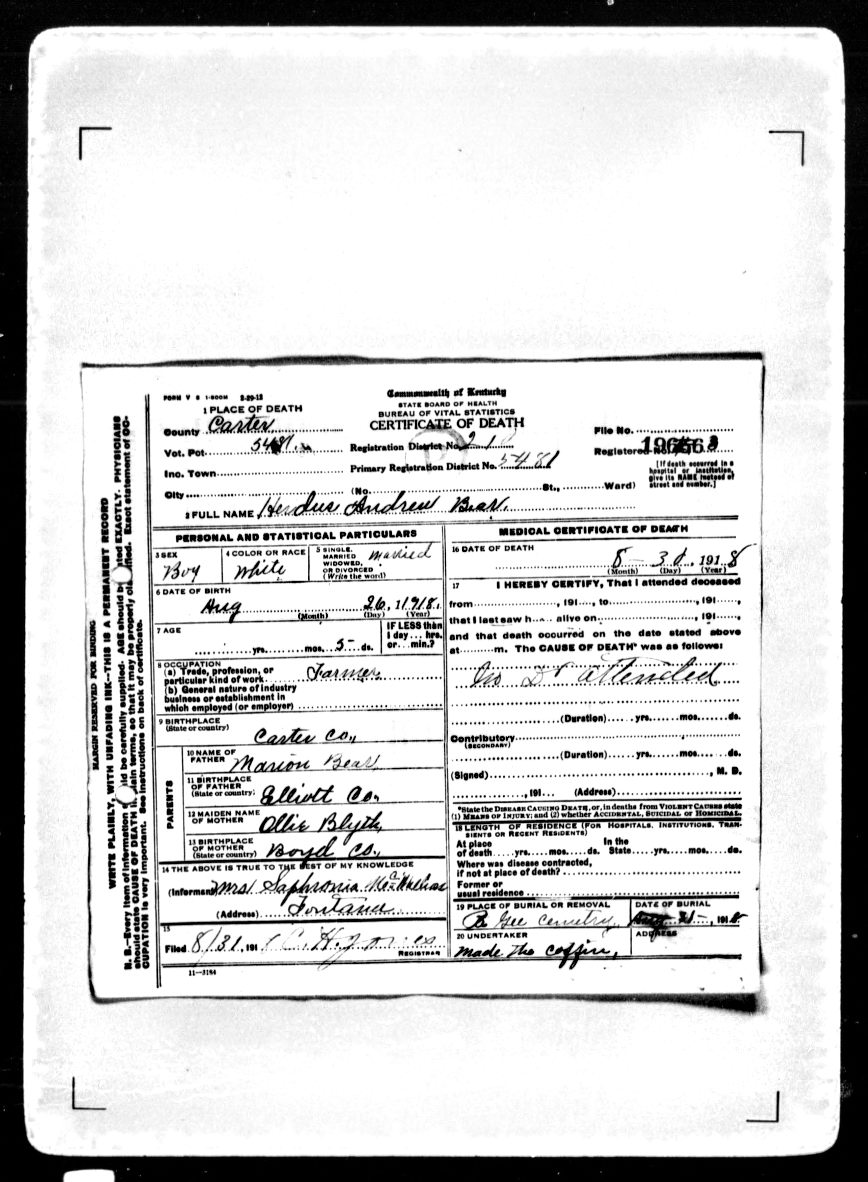 FORM V S 1-500M 2-29-12
Commonwealth of Kentucky
STATE BOARD OF HEALTH
BUREAU OF VITAL STATISTICS
CERTIFICATE OF DEATH
1 PLACE OF DEATH
County Carter
Vot. Pct. 5481
Inc. Town
City
Registration District No. 21
Primary Registration District No. 5481
(No. St., Ward)
File No.
Registered No.
[If death occurred in a
hospital or institution,
give its NAME instead of
street and number.]
2 FULL NAME Herdus Andrew Bear.
PERSONAL AND STATISTICAL PARTICULARS
3 SEX
Boy
4 COLOR OR RACE
White
5 SINGLE,
MARRIED
WIDOWED,
OR DIVORCED
(Write the word)
Married
6 DATE OF BIRTH
Aug 26, 1918.
(Month) (Day) (Year)
7 AGE
yrs. mos. 5 ds.
IF LESS than
1 day ... hrs.
or ... min.?
8 OCCUPATION
(a) Trade, profession, or
particular kind of work Farmer
(b) General nature of industry
business or establishment in
which employed (or employer)
9 BIRTHPLACE
(State or country)
Carter Co,
PARENTS
10 NAME OF
FATHER Marion Bear
11 BIRTHPLACE
OF FATHER
(State or country) Elliott Co,
12 MAIDEN NAME
OF MOTHER Ollie Blyth
13 BIRTHPLACE
OF MOTHER
(State or country) Boyd Co,
14 THE ABOVE IS TRUE TO THE BEST OF MY KNOWLEDGE
(Informant) Mrs Saphronia
(Address) Fontana
15
Filed 8/31, 191
REGISTRAR
11-3184
MEDICAL CERTIFICATE OF DEATH
16 DATE OF DEATH
8 31, 1918
(Month) (Day) (Year)
17 I HEREBY CERTIFY, That I attended deceased
from , 191 , to , 191 ,
that I last saw h alive on , 191 ,
and that death occurred on the date stated above
at m. The CAUSE OF DEATH* was as follows:
No Dr attended
(Duration) yrs. mos. ds.
Contributory
(SECONDARY)
(Duration) yrs. mos. ds.
(Signed) , M. D.
, 191 (Address)
*State the DISEASE CAUSING DEATH, or, in deaths from VIOLENT CAUSES state
(1) MEANS OF INJURY; and (2) whether ACCIDENTAL, SUICIDAL or HOMICIDAL.
18 LENGTH OF RESIDENCE (FOR HOSPITALS, INSTITUTIONS, TRAN-
SIENTS OR RECENT RESIDENTS)
At place In the
of death yrs. mos. ds. State yrs. mos. ds.
Where was disease contracted,
if not at place of death?
Former or
usual residence
19 PLACE OF BURIAL OR REMOVAL
B Gee Cemetry
DATE OF BURIAL
Aug 31, 1918
20 UNDERTAKER
made the coffin,
ADDRESS
MARGIN RESERVED FOR BINDING
WRITE PLAINLY, WITH UNFADING INK—THIS IS A PERMANENT RECORD
N. B.—Every item of information should be carefully supplied. AGE should be stated EXACTLY. PHYSICIANS
should state CAUSE OF DEATH in plain terms, so that it may be properly classified. Exact statement of OC-
CUPATION is very important. See instructions on back of certificate.